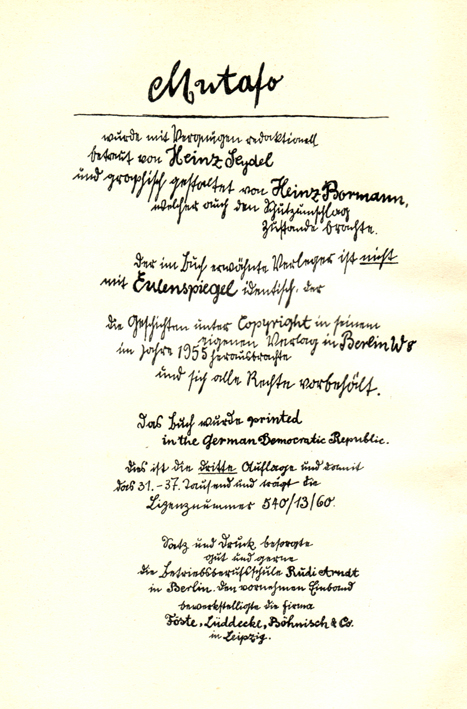 Mutafo
wurde mit Vergnügen redaktionell
betreut von Heinz Seydel
und graphisch gestaltet von Heinz Bormann,
welcher auch den Schutzumschlag
zustande brachte.
Der im Buch erwähnte Verleger ist nicht
mit Eulenspiegel identisch, der
die Geschichten unter Copyright in seinem
eigenen Verlag in Berlin W8
im Jahre 1955 herausbrachte
und sich alle Rechte vorbehält.
Das Buch wurde printed
in the German Democratic Republic.
Dies ist die dritte Auflage und damit
das 31.-37. Tausend und trägt die
Lizenznummer 540/13/60.
Satz und Druck besorgte
gut und gerne
die Betriebsberufsschule Rudi Arndt
in Berlin. Den vornehmen Einband
bewerkstelligte die Firma
Föste, Lüddecke, Böhnisch & Co.
in Leipzig.